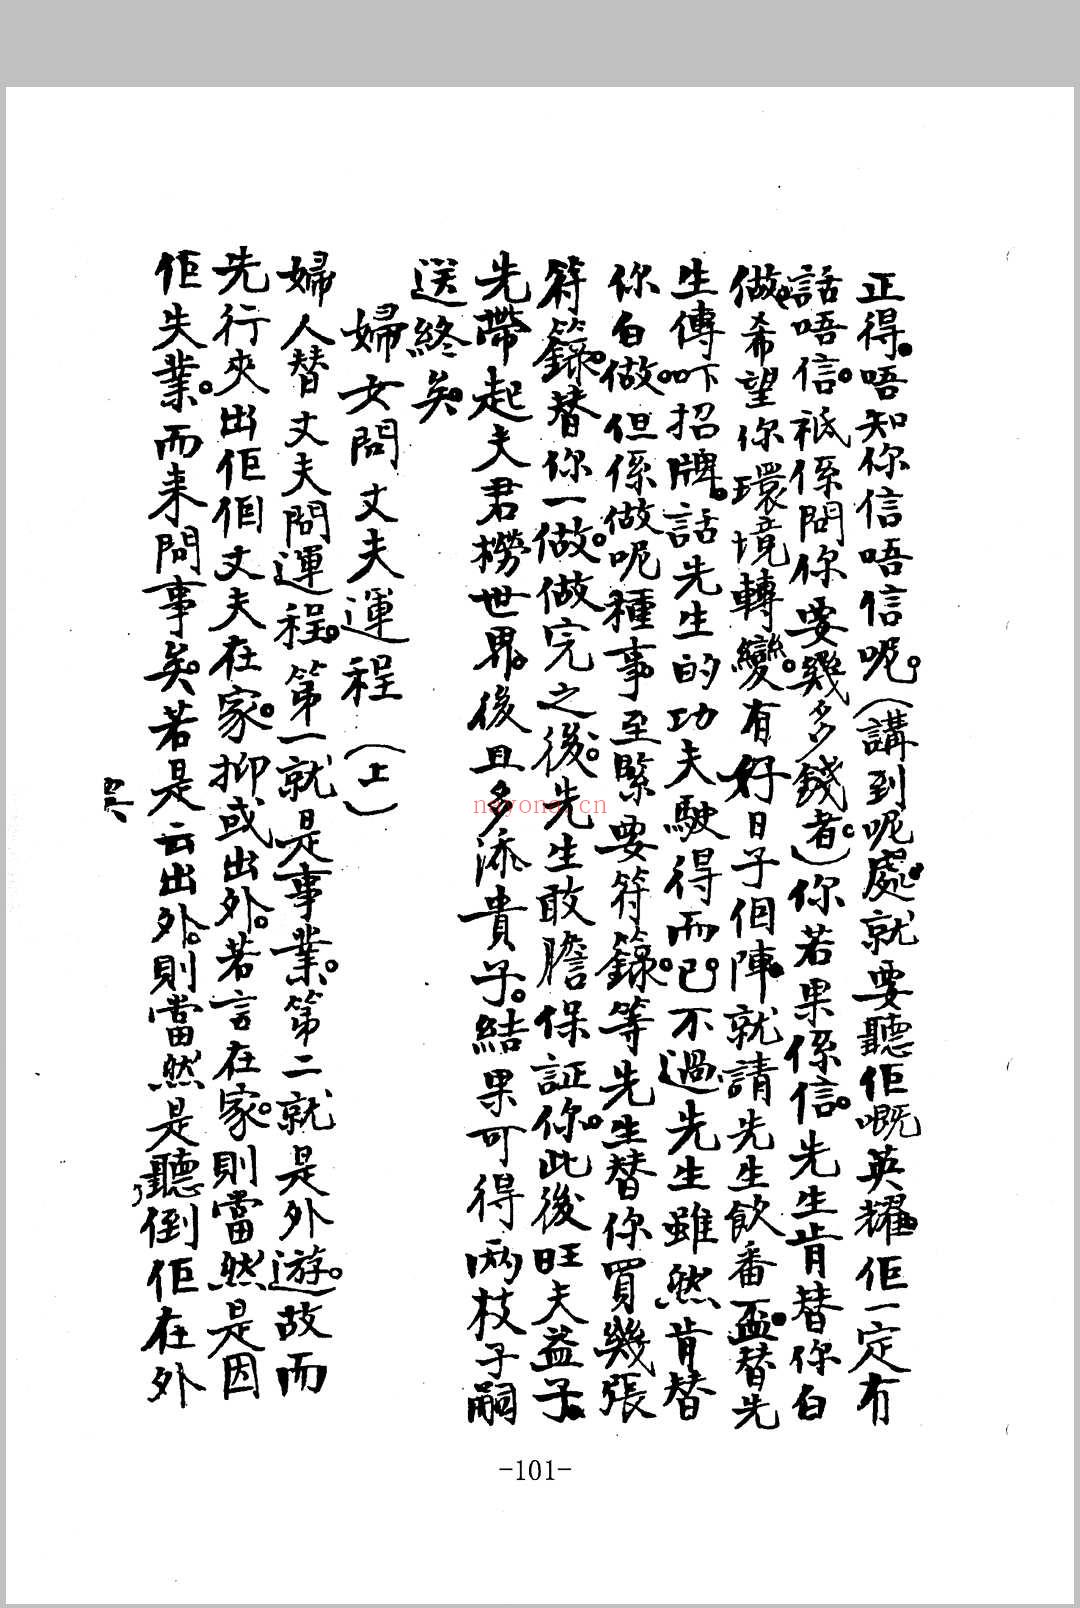 正得。唔知你信唔信呢。(講到呢處。就要聽佢嘅英耀。佢一定有
話唔信。祇係問你要幾多錢者。)你若果係信。先生肯替你白
做。希望你環境轉變。有好日子個陣。就請先生飲番盃。替先
生傳吓招牌。話先生的功夫駛得而已。不過先生雖然肯替
你白做。但係做呢種事至緊要符籙。等先生替你買幾張
符籙。替你一做。做完之後。先生敢膽保証你。此後旺夫益子。
先帶起夫君撈世界。後且多添貴子。結果可得兩枝子嗣
送終矣。
婦女問丈夫運程(上)
婦人替丈夫問運程。第一就是事業。第二就是外遊。故而
先行夾出佢個丈夫在家。抑或出外。若言在家。則當然是因
佢失業。而来問事矣。若是云出外。則當然是聽倒佢在外
nayona.cn
-101-